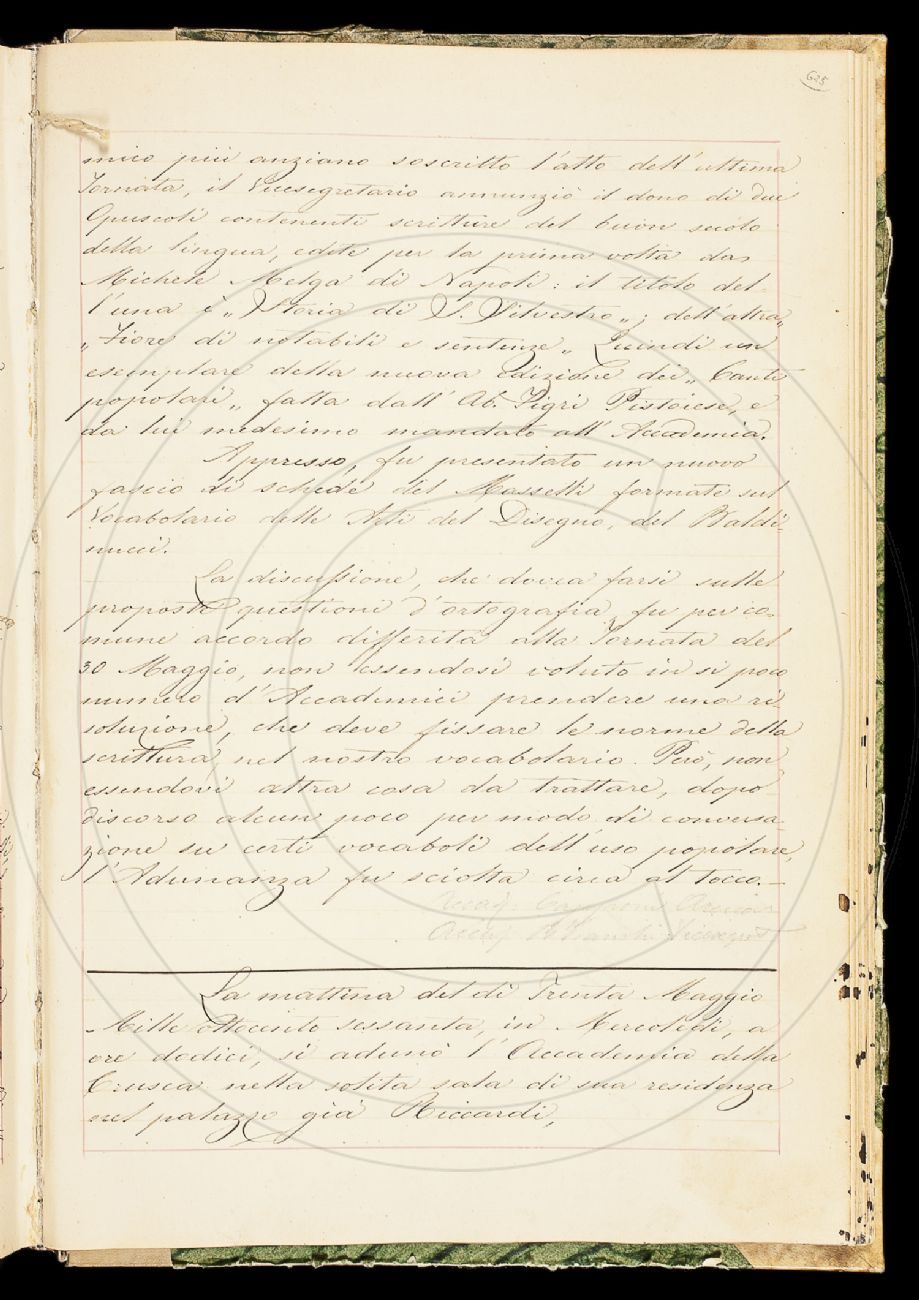 635
mico più anziano soscritto l'atto dell'ultima
Tornata, il Vicesegretario annunziò il dono di due
Opuscoli contenenti scritture del buon secolo
della lingua, edite per la prima volta da
Michele Melga di Napoli: il titolo del-
l'una è „Storia di S. Silvestro„; dell'altra„
„Fiore di notabili e sentenze„ Quindi un
esemplare della nuova edizione dei „Canti
popolari„ fatta dall'Ab. Tigri Pistoiese, e
da lui medesimo mandato all'Accademia.
Appresso, fu presentato un nuovo
fascio di schede del Masselli formate sul
Vocabolario delle Arti del Disegno, del Baldi-
nucci.
La discussione, che dovea farsi sulle
proposte questioni d'ortografia, fu per co-
mune accordo differita alla Tornata del
30 Maggio, non essendosi voluto in sì poco
numero d'Accademici prendere una ri-
soluzione, che deve fissare le norme della
scrittura nel nostro vocabolario. Però, non
essendovi altra cosa da trattare, dopo
discorso alcun poco per modo di conversa-
zione su certi vocaboli dell'uso popolare,
l'Adunanza fu sciolta circa al tocco.—
La mattina del dì Trenta Maggio
Mille ottocento sessanta, in Mercoledì, a
ore dodici, si adunò l'Accademia della
Crusca nella solita sala di sua residenza
nel palazzo già Riccardi,